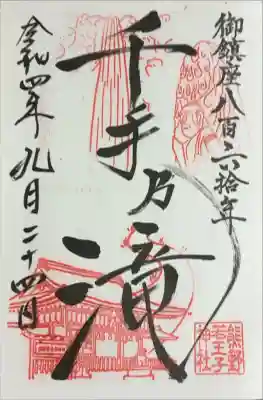 御鎮座八百六拾年
千手乃滝
令和四年九月二十四日
熊野
若王子
神社